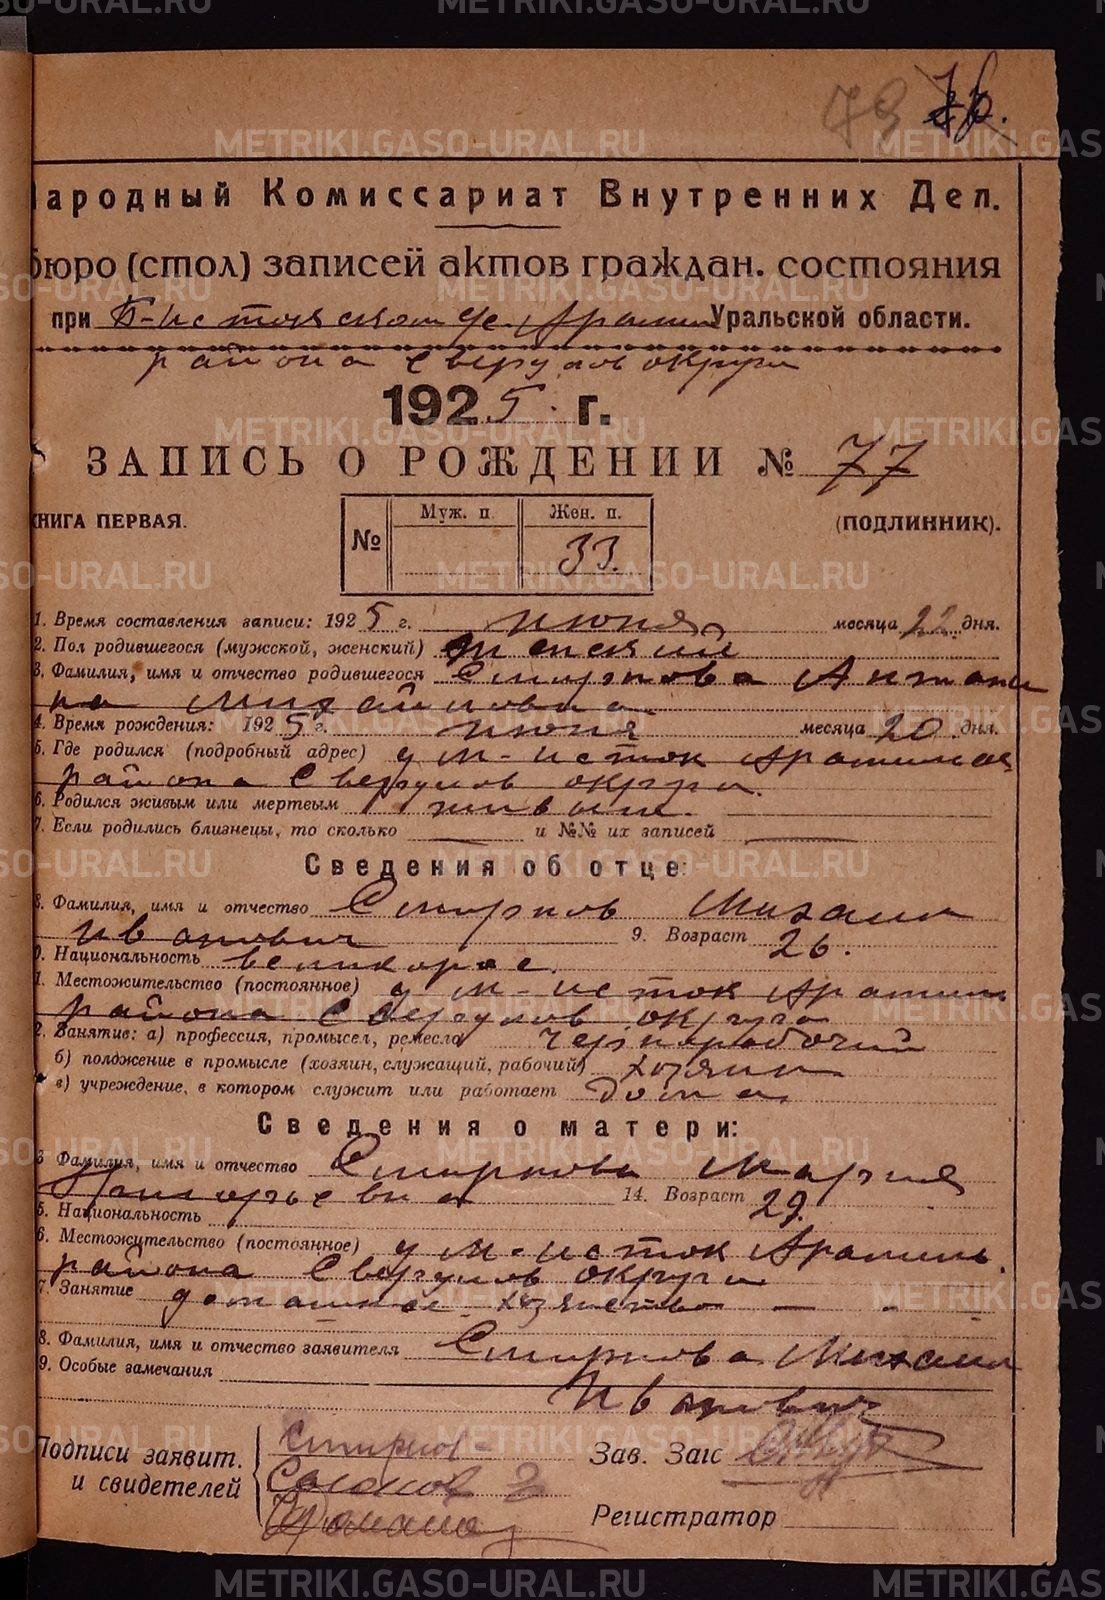 79 76.
Народный Комиссариат Внутренних Дел.
бюро (стол) записей актов граждан. состояния
при Б-Истокском Арамил Уральской области.
района Свердлов округа
1925 г.
ЗАПИСЬ О РОЖДЕНИИ № 77
КНИГА ПЕРВАЯ.
(ПОДЛИННИК).
№ Муж. п. Жен. п.
33.
1. Время составления записи: 1925 г. июня месяца 22 дня.
2. Пол родившегося (мужской, женский) женский
3. Фамилия, имя и отчество родившегося Смирнова Антони
на Михайловна
4. Время рождения: 1925 г. июня месяца 20 дня.
5. Где родился (подробный адрес) д М-Исток Арамильс
района Свердлов округа.
6. Родился живым или мертвым живым.
7. Если родились близнецы, то сколько и №№ их записей
Сведения об отце:
8. Фамилия, имя и отчество Смирнов Михаил
Иванович 9. Возраст 26.
0. Национальность великорос.
1. Местожительство (постоянное) д М-Исток Арамил
района Свердлов округа
2. Занятие: а) профессия, промысел, ремесло чернорабочий
б) положение в промысле (хозяин, служащий, рабочий) хозяин
в) учреждение, в котором служит или работает дома
Сведения о матери:
3 Фамилия, имя и отчество Смирнова Мария
Григорьевна 14. Возраст 29.
5. Национальность
6. Местожительство (постоянное) д М-Исток Арамиль.
района Свердлов округа
7. Занятие домашнее хозяйство
8. Фамилия, имя и отчество заявителя Смирнова Михаил
9. Особые замечания Иванович
Подписи заявит.
и свидетелей
Смирнов
Зав. Загс
Регистратор
METRIKI.GASO-URAL.RU